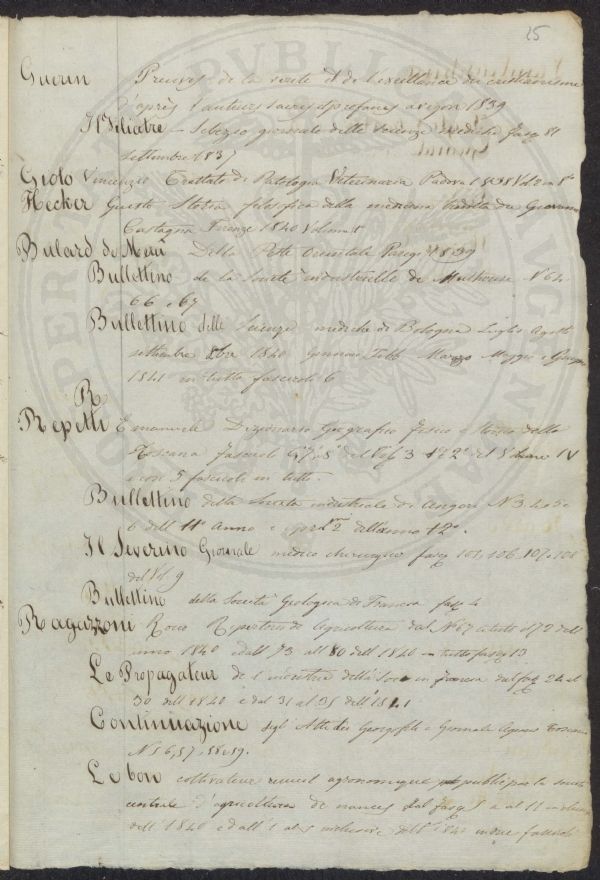 25
Guerin Preuves de la verité et de l'excellence du cristianisme
d'après l'auteurs sacres et profanes avignon 1839
Il Filiatre Sebezio giornale delle scienze mediche fasc 81
settembre 1837
Gioto Vincenzo Trattato di Patologia Veterinaria Padova 1838 Vol 2 in 8°
Hecker Storia filosofica della medicina
Castagna Firenze 1840 Volume
Bulard de Meru Della Peste orientale Parigi 1839
Bullettino de la Société industrielle de Mulhouse N° 64
66 e 67
Bullettino delle Scienze mediche di Bologna Luglio Agosto
settembre 8bre 1840 gennaio Febb Marzo Maggio e Giugno
1841 in tutto fascicoli 6
R
Repetti Emanuele Dizionario Geografico fisico e storico della
Toscana fascicoli 6 7 8 del Vol 3 1 e 2 del Volume IV
e con 5 fascicoli in tutto.
Bullettino della Società industriale di Angers N 3. 4. 5 e
6 dell 11° Anno e 2 dell'anno 12°.
Il Severino Giornale medico chirurgico fasc 105, 106, 107, 108
del Vol 9
Bullettino della Società Geologica di Francia fasc 4
Ragazzoni Rocco Repertorio di Agricoltura dal N° 67 al 72 dell
anno 1840 e dall 73 all 80 dell 1840 in tutto fasci 13
Le Propagateur de l'industrie della Soie in francia dal fasc 24 al
30 dell 1840 e dal 31 al 35 dell' 1841
Continuazione degli Atti dei Georgofili e Giornale Agrario Toscano
N 56, 57, 58 e 59.
Le bon cultivateur recueil agronomique publié par la société
centrale d'agricoltura de nancy dal fasc 1 al 11 inclusive
dell' 1840 e dall' 1 al 5 inclusive dell' 1840 in due fascicoli